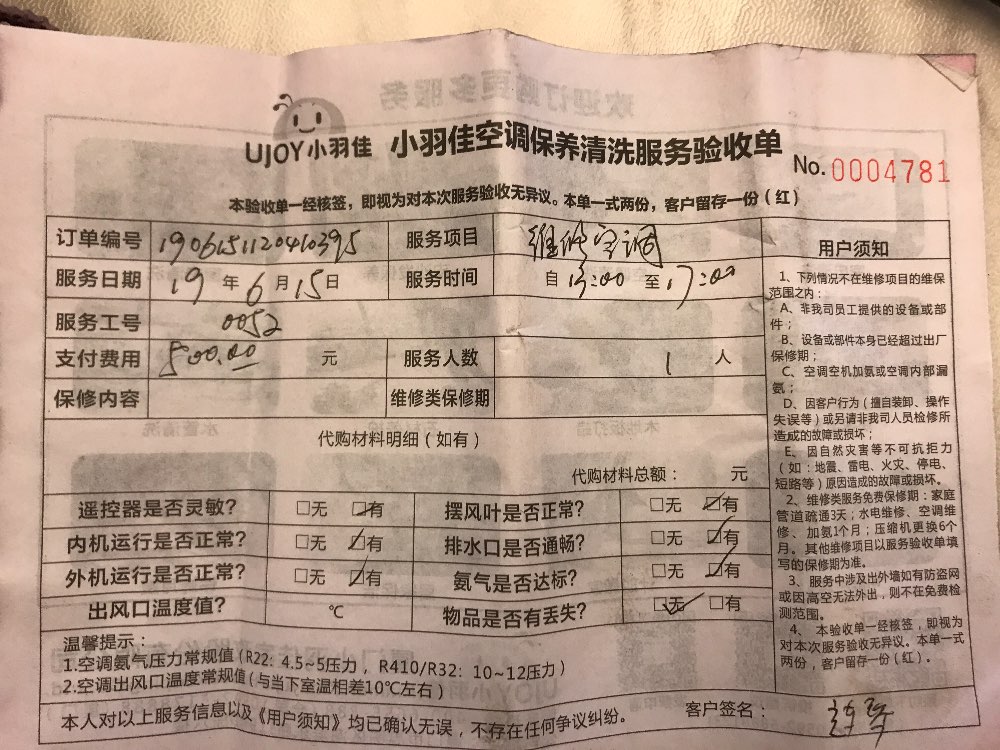 UJOY小羽佳 小羽佳空调保养清洗服务验收单 No.0004781
本验收单一经核签，即视为对本次服务验收无异议。本单一式两份，客户留存一份（红）
订单编号 190615112040395 服务项目 维修空调
服务日期 19年6月15日 服务时间 自13:00至17:00
服务工号 0052
支付费用 500.00元 服务人数 1人
保修内容 维修类保修期
代购材料明细（如有）
代购材料总额： 元
遥控器是否灵敏？ □无 ☑有 摆风叶是否正常？ □无 ☑有
内机运行是否正常？ □无 ☑有 排水口是否通畅？ □无 ☑有
外机运行是否正常？ □无 ☑有 氨气是否达标？ □无 ☑有
出风口温度值？ ℃ 物品是否有丢失？ ☑无 □有
温馨提示：
1.空调氨气压力常规值（R22：4.5~5压力，R410/R32：10~12压力）
2.空调出风口温度常规值（与当下室温相差10℃左右）
本人对以上服务信息以及《用户须知》均已确认无误，不存在任何争议纠纷。 客户签名：
用户须知
1、下列情况不在维修项目的维保
范围之内：
A、非我司员工提供的设备或部
件；
B、设备或部件本身已经超过出厂
保修期；
C、空调空机加氨或空调内部漏
氨；
D、因客户行为（擅自装卸、操作
失误等）或另请非我司人员检修所
造成的故障或损坏；
E、因自然灾害等不可抗拒力
（如：地震、雷电、火灾、停电、
短路等）原因造成的故障或损坏。
2、维修类服务免费保修期：家庭
管道疏通3天；水电维修、空调维
修、加氨1个月；压缩机更换6个
月。其他维修项目以服务验收单填
写的保修期为准。
3、服务中涉及出外墙如有防盗网
或因高空无法外出，则不在免费检
测范围。
4、本验收单一经核签，即视为
对本次服务验收无异议。本单一式
两份，客户留存一份（红）。